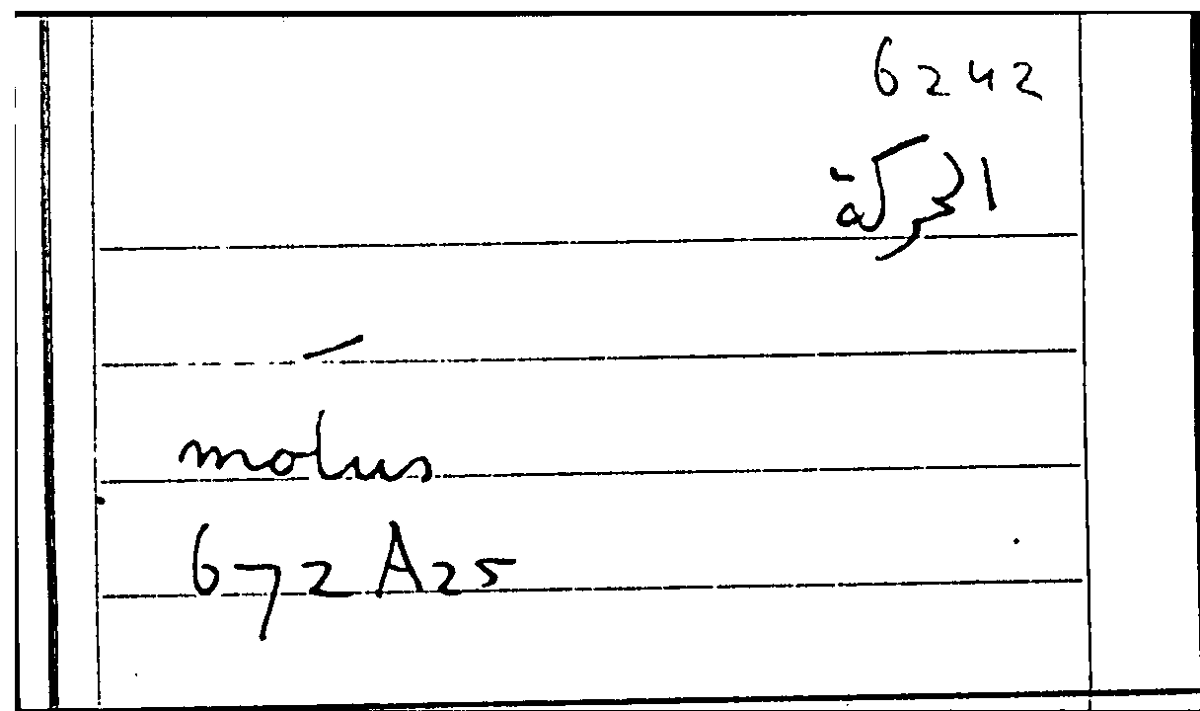 6242
الحركة
motus
672A25